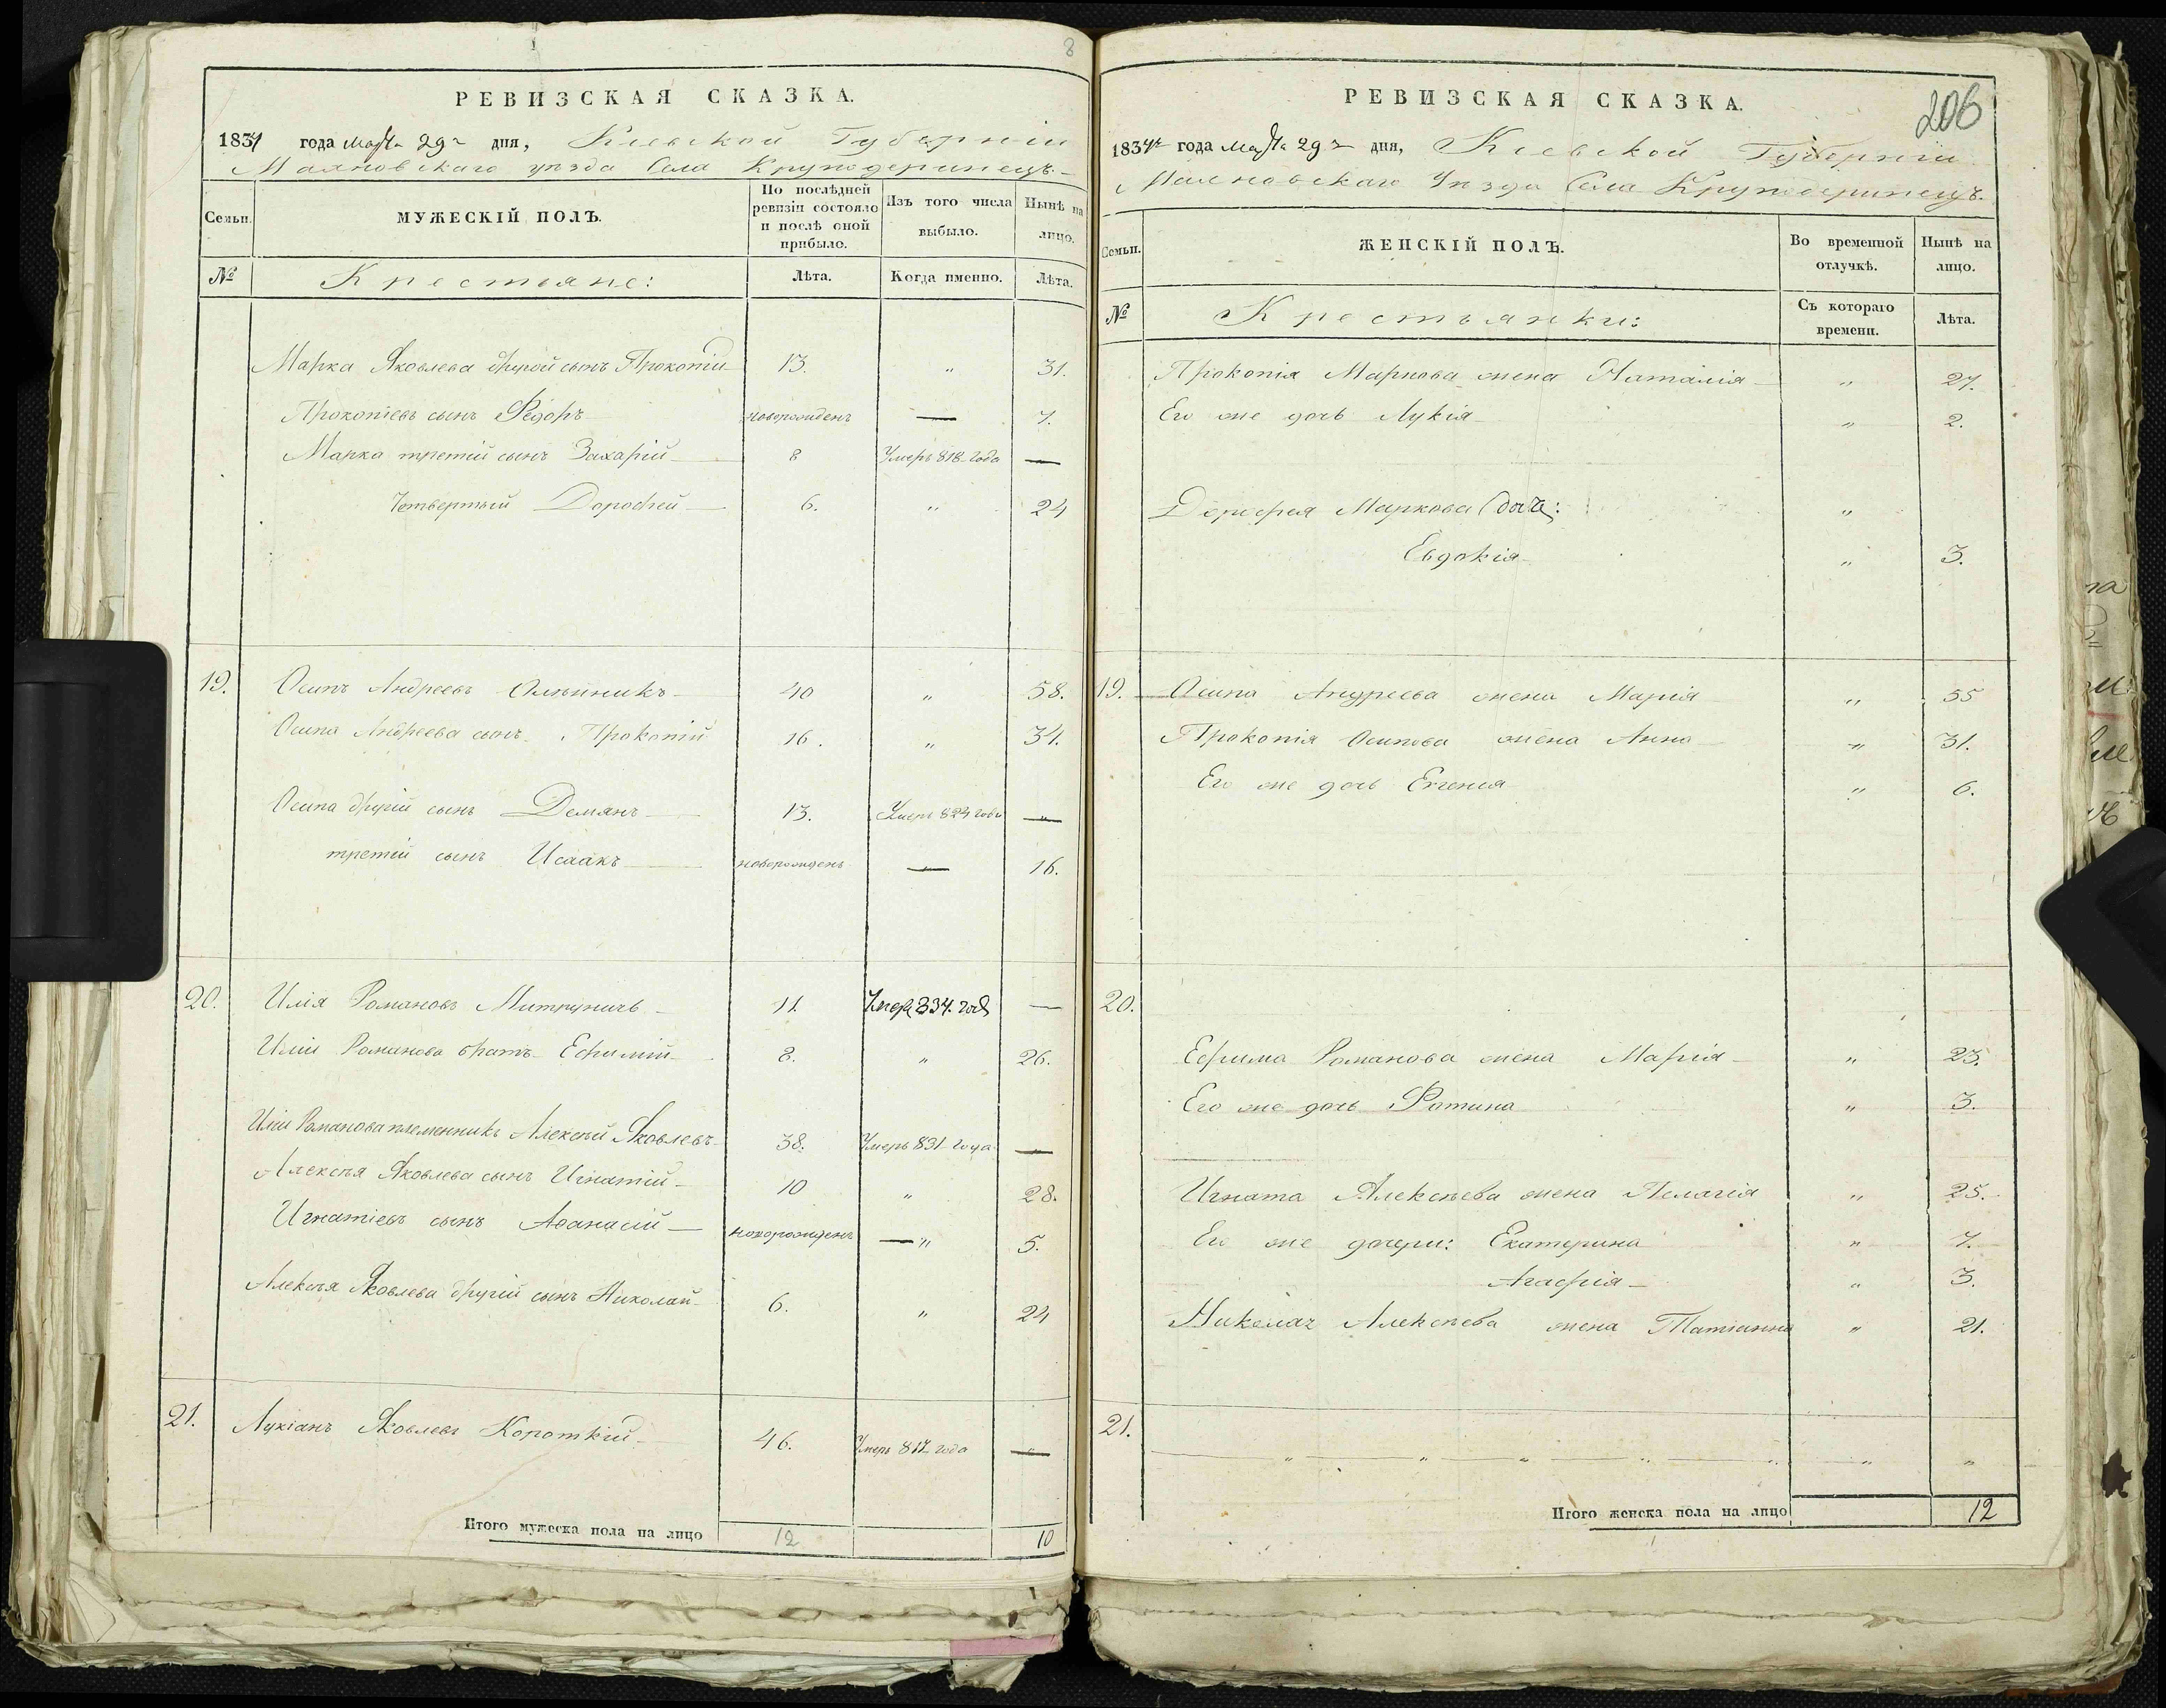 8
РЕВИЗСКАЯ СКАЗКА.
1834 года марта 29го дня, Кіевской Губерніи
Махновскаго уѣзда Села Круподеринецъ
Семьи.
МУЖЕСКІЙ ПОЛЪ.
По послѣдней ревизіи состояло и послѣ оной прибыло.
Изъ того числа выбыло.
Нынѣ на лицо.
№
Крестьяне:
Лѣта.
Когда именно.
Лѣта.
Марка Яковлева другой сынъ Прокопій 13. " 31.
Прокопіевъ сынъ Ѳедоръ новорожденъ — 7.
Марка третій сынъ Захарій 8 Умеръ 818 года —
Четвертый Дорофей 6. " 24
19. Осипъ Андреевъ Олѣйникъ 40 " 58.
Осипа Андреева сынъ Прокопій 16. " 34.
Осипа другій сынъ Демянъ 13. Умеръ 824 года —
третій сынъ Исаакъ новорожденъ — 16.
20. Илія Романовъ Митруничъ 11. Умеръ 834. года —
Иліи Романова братъ Ефимій 8. " 26.
Иліи Романова племенникъ Алексѣй Яковлевъ 38. Умеръ 831 года —
Алексѣя Яковлева сынъ Игнатій 10 " 28.
Игнатіевъ сынъ Аѳанасій новорожденъ — " 5.
Алексѣя Яковлева другій сынъ Николай 6. " 24
21. Лукіанъ Яковлевъ Короткій 46. Умеръ 817 года —
Итого мужеска пола на лицо 12 10
206
РЕВИЗСКАЯ СКАЗКА.
1834го года марта 29го дня, Кіевской Губерніи
Махновскаго Уѣзда Села Круподеринецъ.
Семьи.
ЖЕНСКІЙ ПОЛЪ.
Во временной отлучкѣ.
Нынѣ на лицо.
№
Крестьянки:
Съ котораго времени.
Лѣта.
Прокопія Маркова жена Наталія " 27.
Его же дочь Лукія " 2.
Дорофея Маркова дочь: "
Евдокія " 3.
19. Осипа Андреева жена Марія " 55
Прокопія Осипова жена Анна " 31.
Его же дочь Евгенія " 6.
20.
Ефима Романова жена Марія " 23.
Его же дочь Фотина " 3.
Игната Алексѣева жена Пелагія " 25.
Его же дочери: Екатерина " 7.
Агафія " 3.
Николая Алексѣева жена Татіанна " 21.
21. — " — " — " — " — " — " "
Итого женска пола на лицо 12